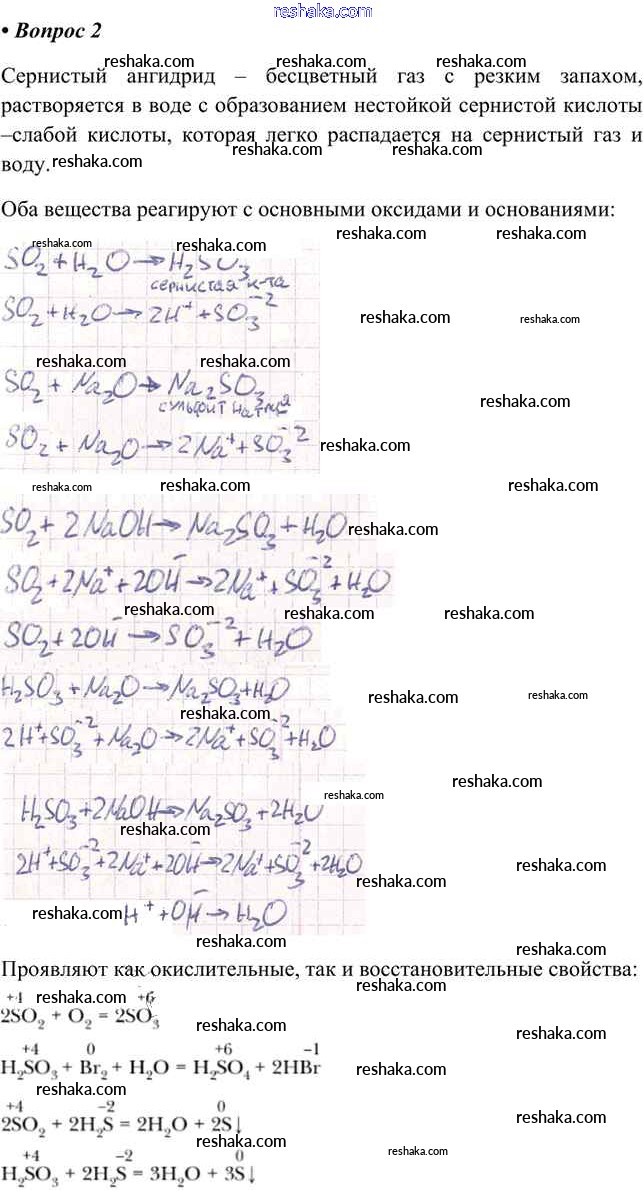 www.reshaka.com
• Вопрос 2
reshaka.com reshaka.com
Сернистый ангидрид – бесцветный газ с резким запахом,
reshaka.com reshaka.com
растворяется в воде с образованием нестойкой сернистой кислоты
–слабой кислоты, которая легко распадается на сернистый газ и
reshaka.com reshaka.com reshaka.com
воду.
Оба вещества реагируют с основными оксидами и основаниями:
reshaka.com reshaka.com reshaka.com reshaka.com
SO₂ + H₂O → H₂SO₃
сернистая к-та
SO₂ + H₂O → 2H⁺ + SO₃⁻²
reshaka.com reshaka.com
reshaka.com reshaka.com
SO₂ + Na₂O → Na₂SO₃
сульфит натрия
reshaka.com
SO₂ + Na₂O → 2Na⁺ + SO₃⁻²
reshaka.com
reshaka.com reshaka.com reshaka.com reshaka.com
SO₂ + 2NaOH → Na₂SO₃ + H₂O
reshaka.com
SO₂ + 2Na⁺ + 2OH⁻ → 2Na⁺ + SO₃⁻² + H₂O
reshaka.com reshaka.com reshaka.com
SO₂ + 2OH⁻ → SO₃⁻² + H₂O
H₂SO₃ + Na₂O → Na₂SO₃ + H₂O
reshaka.com reshaka.com
reshaka.com
2H⁺ + SO₃⁻² + Na₂O → 2Na⁺ + SO₃⁻² + H₂O
reshaka.com
reshaka.com
H₂SO₃ + 2NaOH → Na₂SO₃ + 2H₂O
reshaka.com
2H⁺ + SO₃⁻² + 2Na⁺ + 2OH⁻ → 2Na⁺ + SO₃⁻² + 2H₂O
reshaka.com
reshaka.com
H⁺ + OH⁻ → H₂O
reshaka.com
reshaka.com
Проявляют как окислительные, так и восстановительные свойства:
reshaka.com
+4 reshaka.com +6
2SO₂ + O₂ = 2SO₃
reshaka.com
+4 0 +6 –1
H₂SO₃ + Br₂ + H₂O = H₂SO₄ + 2HBr
reshaka.com reshaka.com
+4 –2 0
2SO₂ + 2H₂S = 2H₂O + 2S↓
reshaka.com
reshaka.com
+4 –2 0
reshaka.com
H₂SO₃ + 2H₂S = 3H₂O + 3S↓
reshaka.com